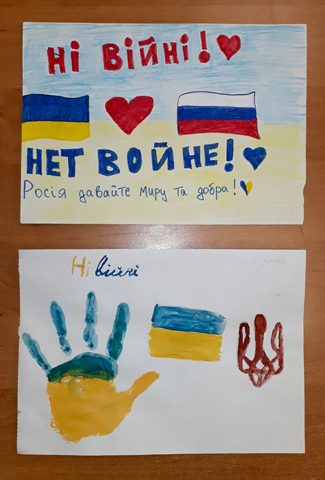 Ні війні!
НЕТ ВОЙНЕ!
Росія давайте миру та добра!
Ні війні